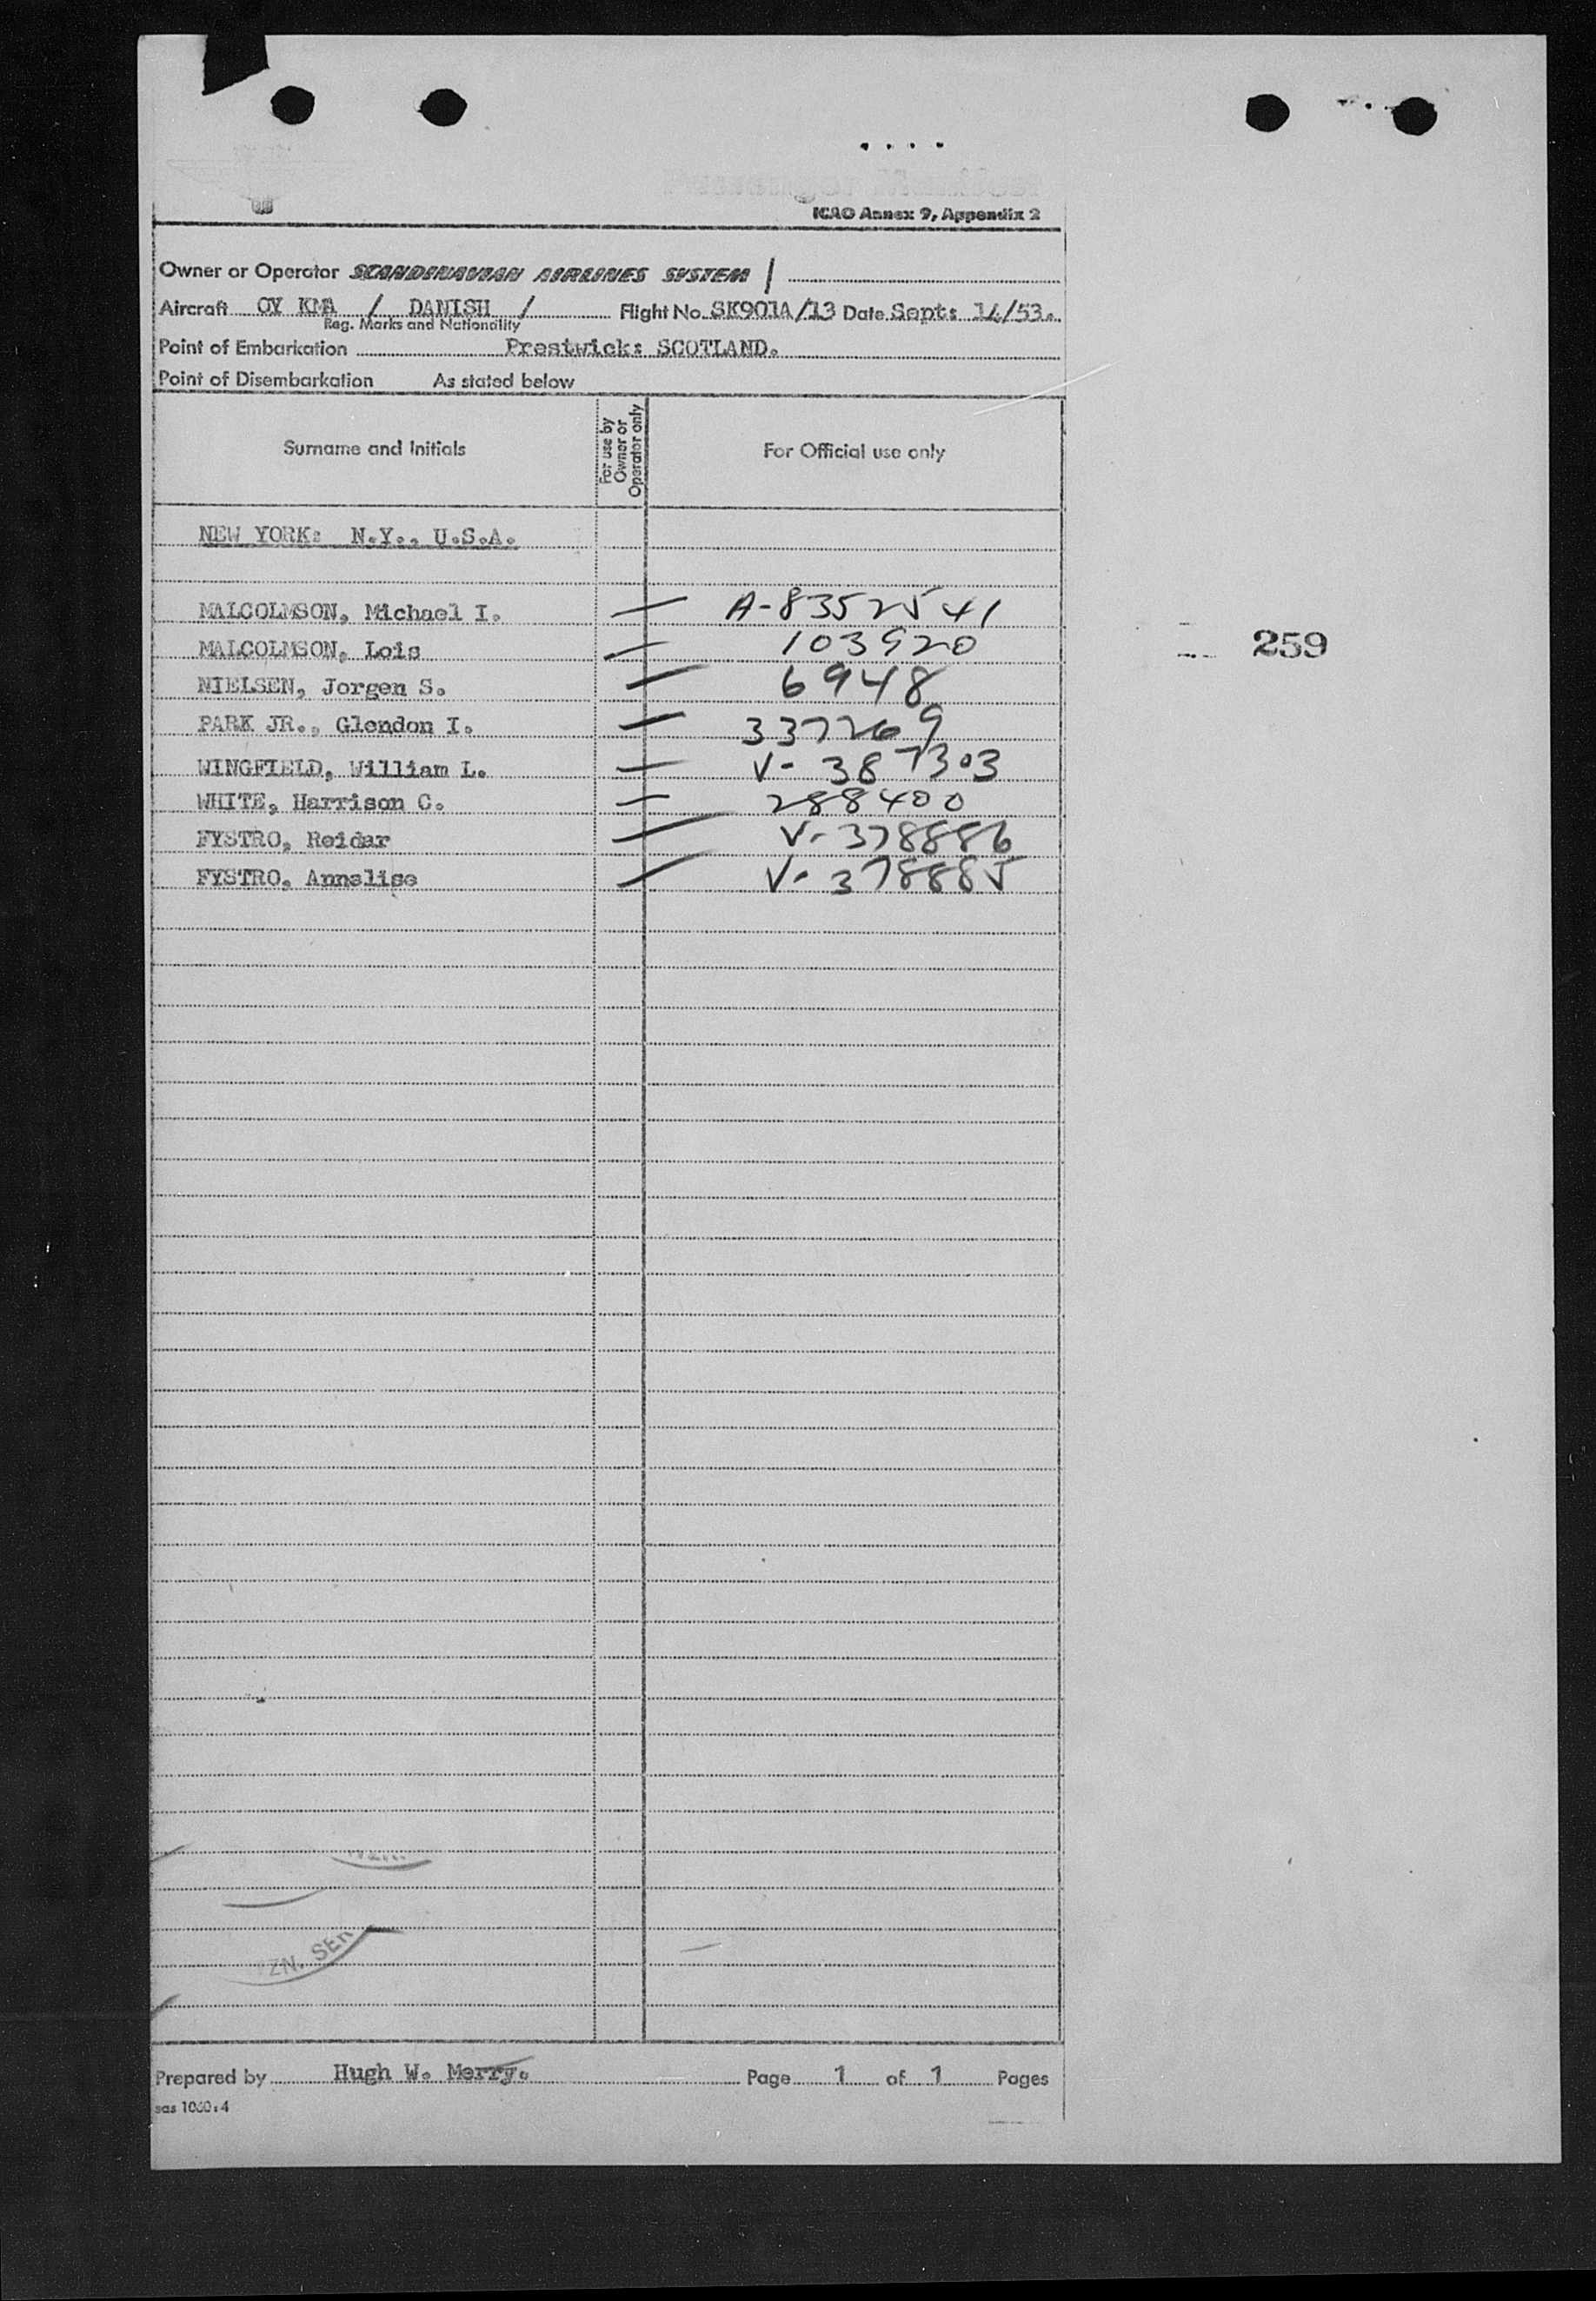 ICAO Annex 9, Appendix 2
Owner or Operator SCANDINAVIAN AIRLINES SYSTEM /
Aircraft OY KMA / DANISH / Flight No. SK901A/13 Date Sept: 14/53.
Reg. Marks and Nationality
Point of Embarkation Prestwick: SCOTLAND.
Point of Disembarkation As stated below
Surname and Initials
For use by
Owner or
Operator only
For Official use only
NEW YORK: N.Y., U.S.A.
MALCOLMSON, Michael I. — A-8352541
MALCOLMSON, Lois — 103920
259
NIELSEN, Jorgen S. — 6948
PARK JR., Glendon I. — 337269
WINGFIELD, William L. — V- 387303
WHITE, Harrison C. — 288400
FYSTRO, Reidar — V- 378886
FYSTRO, Annelise — V- 378885
ZN. SER
Prepared by Hugh W. Merry. Page 1 of 1 Pages
sas 1060:4